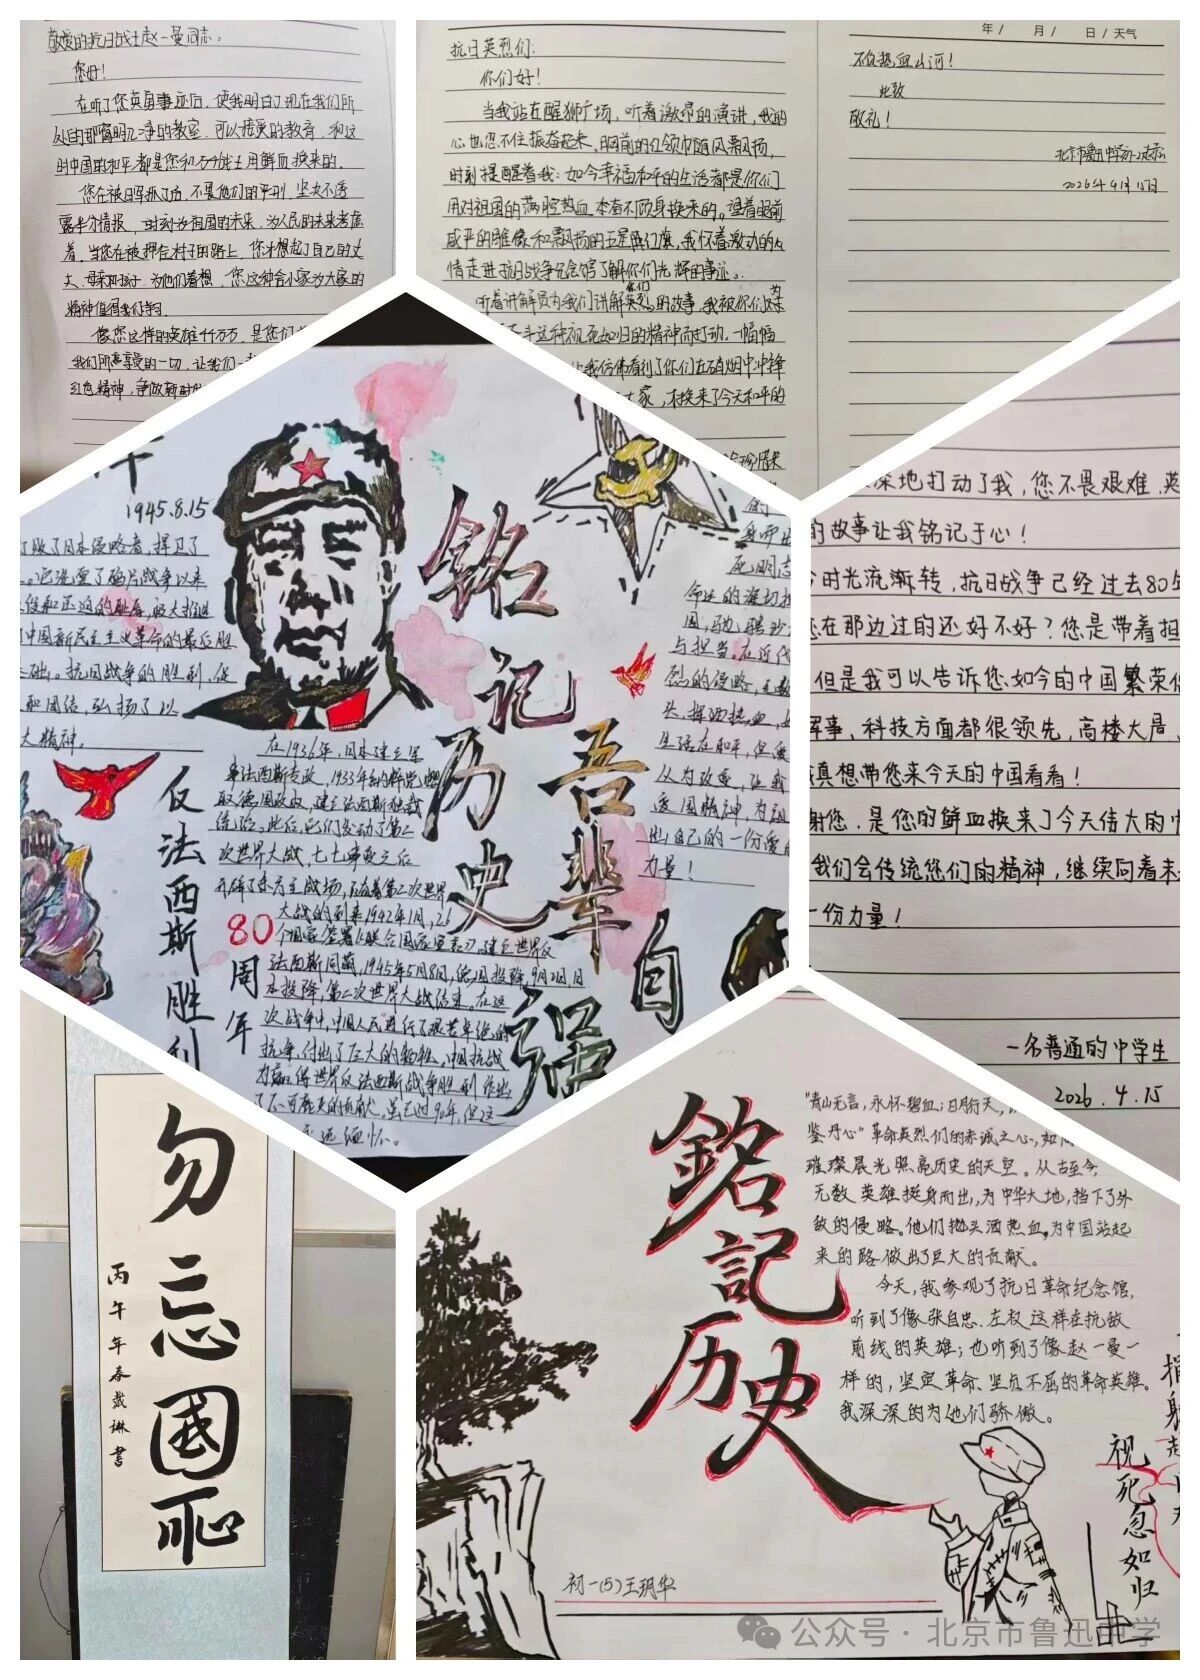 敬爱的抗日战士赵一曼同志:
您好!
在听了您英勇事迹后,使我明白了现在我们所
处的那窗明几净的教室,可以接受的教育,和这
时中国的和平都是您和万千战士用鲜血换来的。
您在被日军抓了后,不畏他们的严刑,坚决不透
露半分情报,时刻为祖国的未来,为人民的未来考虑
着,当您在被押
的路上,您才想起了自己的丈
夫、母亲和孩子,为他们着想,您这种舍小家为大家的
精神值得我们学习。
像您这样的英雄千千万万,是您们
我们所享受的一切,让我们一
红色精神,争做新时
抗日英烈们:
你们好!
当我站在醒狮广场,听着激昂的演讲,我的
心也忍不住振奋起来。胸前的红领巾随风飘扬,
时刻提醒着我:如今幸福和平的生活都是你们
用对祖国的满腔热血、奋不顾身换来的。望着眼前
威严的雕像和飘扬的五星红旗,我怀着激动的心
情走进抗日战争纪念馆了解你们光辉的事迹。
听着讲解员为我们讲解英烈们的故事,我被你们
这种视死如归的精神而打动。一幅幅
让我仿佛看到了你们在硝烟中冲锋
大家,才换来了今天和平的
年/ 月/ 日/天气
不负热血山河!
此致
敬礼!
2026年4月15日
深地打动了我,您不畏艰难,英
的故事让我铭记于心!
今时光流渐转,抗日战争已经过去80年
您在那边过的还好不好?您是带着担
但是我可以告诉您:如今的中国繁荣
军事,科技方面都很领先,高楼大厦
真想带您来今天的中国看看!
谢您,是您的鲜血换来了今天伟大的中
我们会传统您们的精神,继续向着未
一份力量!
一名普通的中学生
2026.4.15
1945.8.15
败了日本侵略者,捍卫了
。它洗雪了鸦片战争以来
中国新民主主义革命的最后胜
础。抗日战争的胜利,促
和团结,弘扬了以
大精神。
铭记历史
吾辈自强
反法西斯胜利
80周年
在1936年,日本建立军
事法西斯专政,1933年纳粹党
取德国政权,建立法西斯独裁
统治。此后,它们发动了第二
次世界大战,七七事变之后
开辟了东方主战场,随着第二次世界
大战的到来1942年1月,26
个国家签署《联合国家宣言》,建立世界反
法西斯同盟,1945年5月8日,德国投降,9月2日,日
本投降,第二次世界大战结束。在这
次战争中,中国人民进行了艰苦卓绝的
抗争,付出了巨大的牺牲。中国抗战
为赢得世界反法西斯战争胜利作出
了不可磨灭的贡献,
永远缅怀。
命运的深切
国,驰骋沙
与担当。在近代
烈的侵略,无数
头,挥洒热血,
生活在和平,但
从为改变,让我
爱国精神,为祖
出自己的一份
力量!
勿忘国耻
丙午年春戴琳書
銘記历史
"青山无言,永怀碧血;日月行天,
鉴丹心"革命英烈们的赤诚之心,如
璀璨晨光照亮历史的天空。从古至今,
无数英雄挺身而出,为中华大地,挡下了外
敌的侵略。他们抛头洒热血,为中国站起
来的路做出了巨大的贡献。
今天,我参观了抗日革命纪念馆,
听到了像张自忠、左权这样在抗敌
前线的英雄;也听到了像赵一曼一
样的,坚定革命、坚贞不屈的革命英雄。
我深深的为他们骄傲。
捐躯赴国难
视死忽如归
初一(5)王玥华
公众号·北京市鲁迅中学